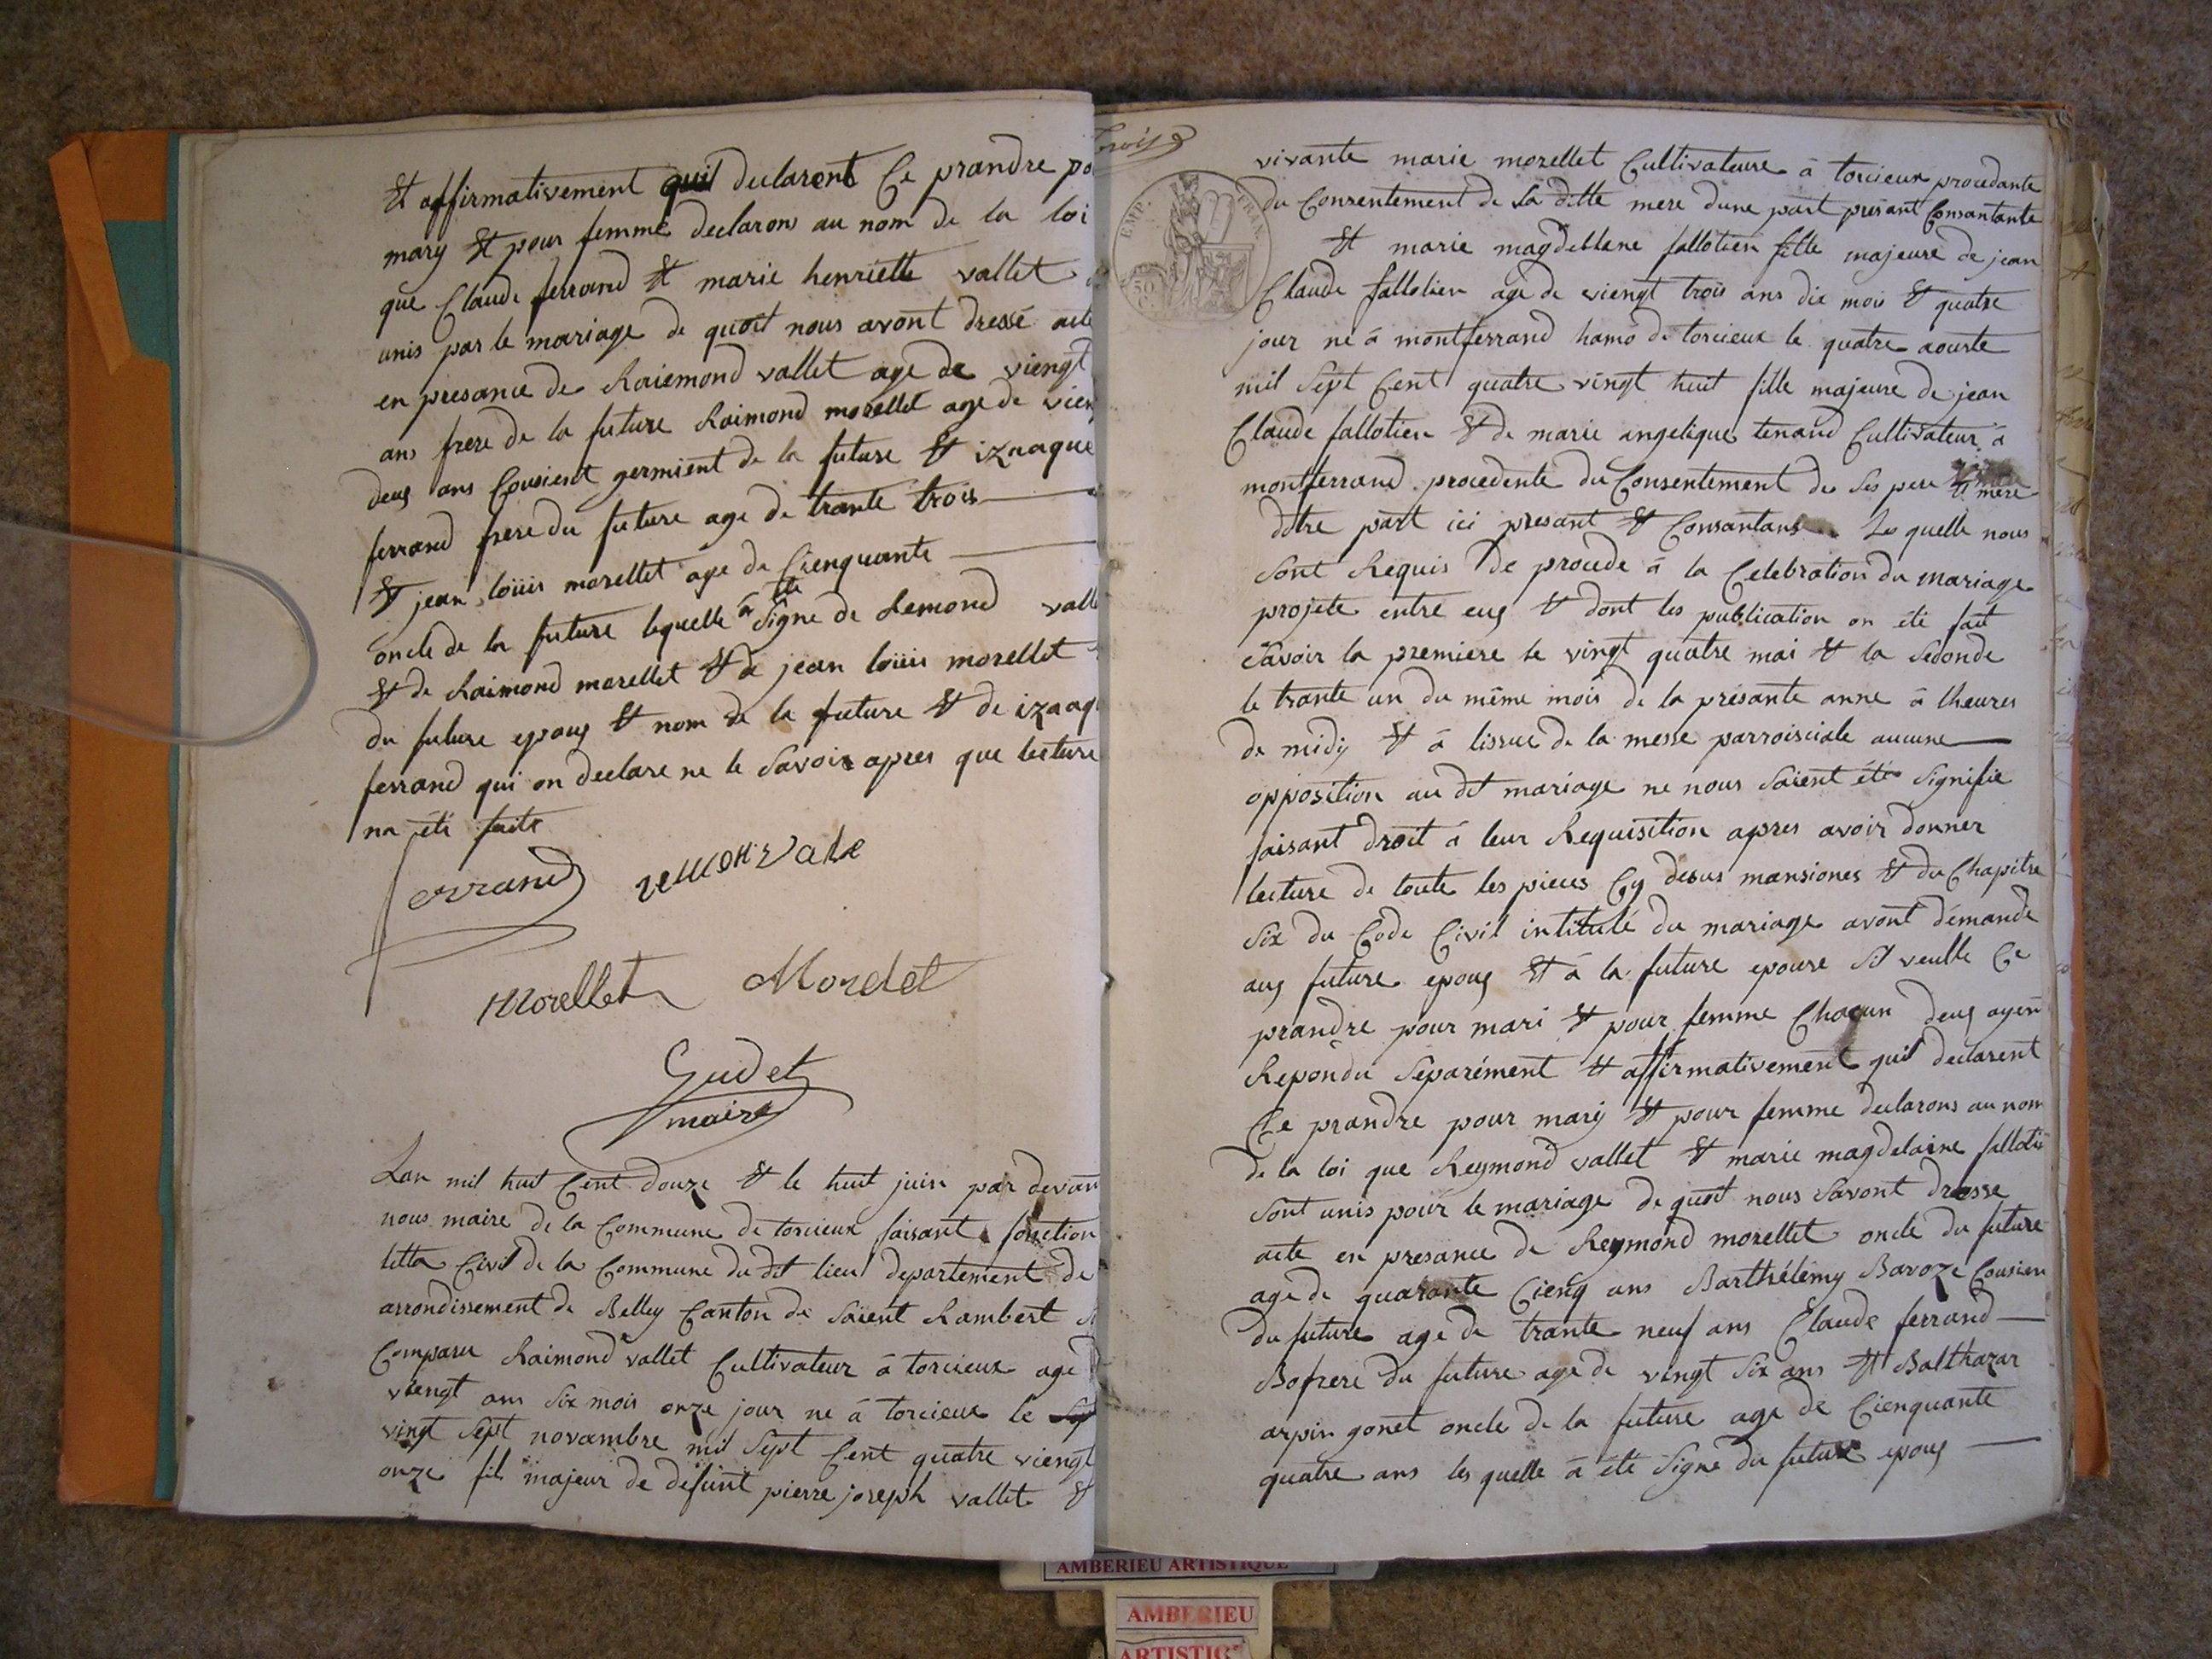 Et affirmativement quil declarent Ce prandre po
mary Et pour femme declarons au nom de la loi
que Claude ferrand Et marie henriette vallet
unis par le mariage de quoit nous avont dressé acte
en presance de Raiemond vallet age de viengt
ans frere de la future Raimond morellet age de vien
deux ans Cousient germient de la future Et iznaque
ferrand frere du future age de trante trois
Et jean loüis morellet age de Cienquante
oncle de la future lequelle à été Signe de Remond vall
Et de Raimond morellet Et de jean loüis morellet
du future epoux Et nom de la future Et de izaaq
ferrand qui on declare ne le Savoir apres que lecture
na été faite
ferrand remon vale
Morellet Morelet
Gudet
maire
Lan mil huit Cent douze Et le huit juin par devan
nous maire de la Commune de torcieux faisant fonction
letta Civil de la Commune du dit lieu departement de
arrondissement de Belley Canton de Saient Rambert
Comparu Raimond vallet Cultivateur à torcieux age
viengt ans Six mois onze jour ne à torcieux le
vingt Sept novembre mil Sept Cent quatre viengt
onze fils majeur de defunt pierre joseph vallet Et
trois
EMP. FRAN.
50 C
vivante marie morellet Cultivateure à torcieux procedante
du Consentement de la ditte mere dune part présant Consantante
Et marie magdellene fallotien fille majeure de jean
Claude fallotien age de viengt trois ans dix mois Et quatre
jour ne à montferrand hamo de torcieux le quatre aouste
mil Sept Cent quatre vingt huit fille majeure de jean
Claude fallotien Et de marie angelique tenand Cultivateur à
montferrand procedente du Consentement de Ses pere Et mere
dôtre part ici presant Et Consantans Le quelle nous
Sont Requis de procede à la Celebration du mariage
projete entre eux Et dont les publication on été fait
Savoir la premiere le vingt quatre mai Et la Seconde
le trante un du même mois de la présante anne à lheures
de midy Et à lissue de la messe parroisciale aucune
opposition au dit mariage ne nous Saient été Signifie
faisant droit à leur Requisition apres avoir donner
lecture de toute les pieces Cy desus mansiones Et du Chapitre
Six du Code Civil intitulé du mariage avont démande
aux future epoux Et à la future epouse Sil veulle Ce
prandre pour mari Et pour femme Chacun deux ayen
Repondu Separément Et affirmativement quil declarent
Ce prandre pour mary Et pour femme declarons au nom
de la loi que Reymond vallet Et marie magdelaine fallotie
Sont unis pour le mariage de quoit nous Savont dresse
acte en presance de Reymond morellet oncle du future
age de quarante Cienq ans Barthélémy Bavoze Cousien
du future age de trante neuf ans Claude ferrand
Bofrere du future age de vingt Six ans Et Balthazar
arpin gonet oncle de la future age de Cienquante
quatre ans les quelle à été Signe du future epoux
AMBERIEU ARTISTIQUE
AMBERIEU
ARTISTIQ